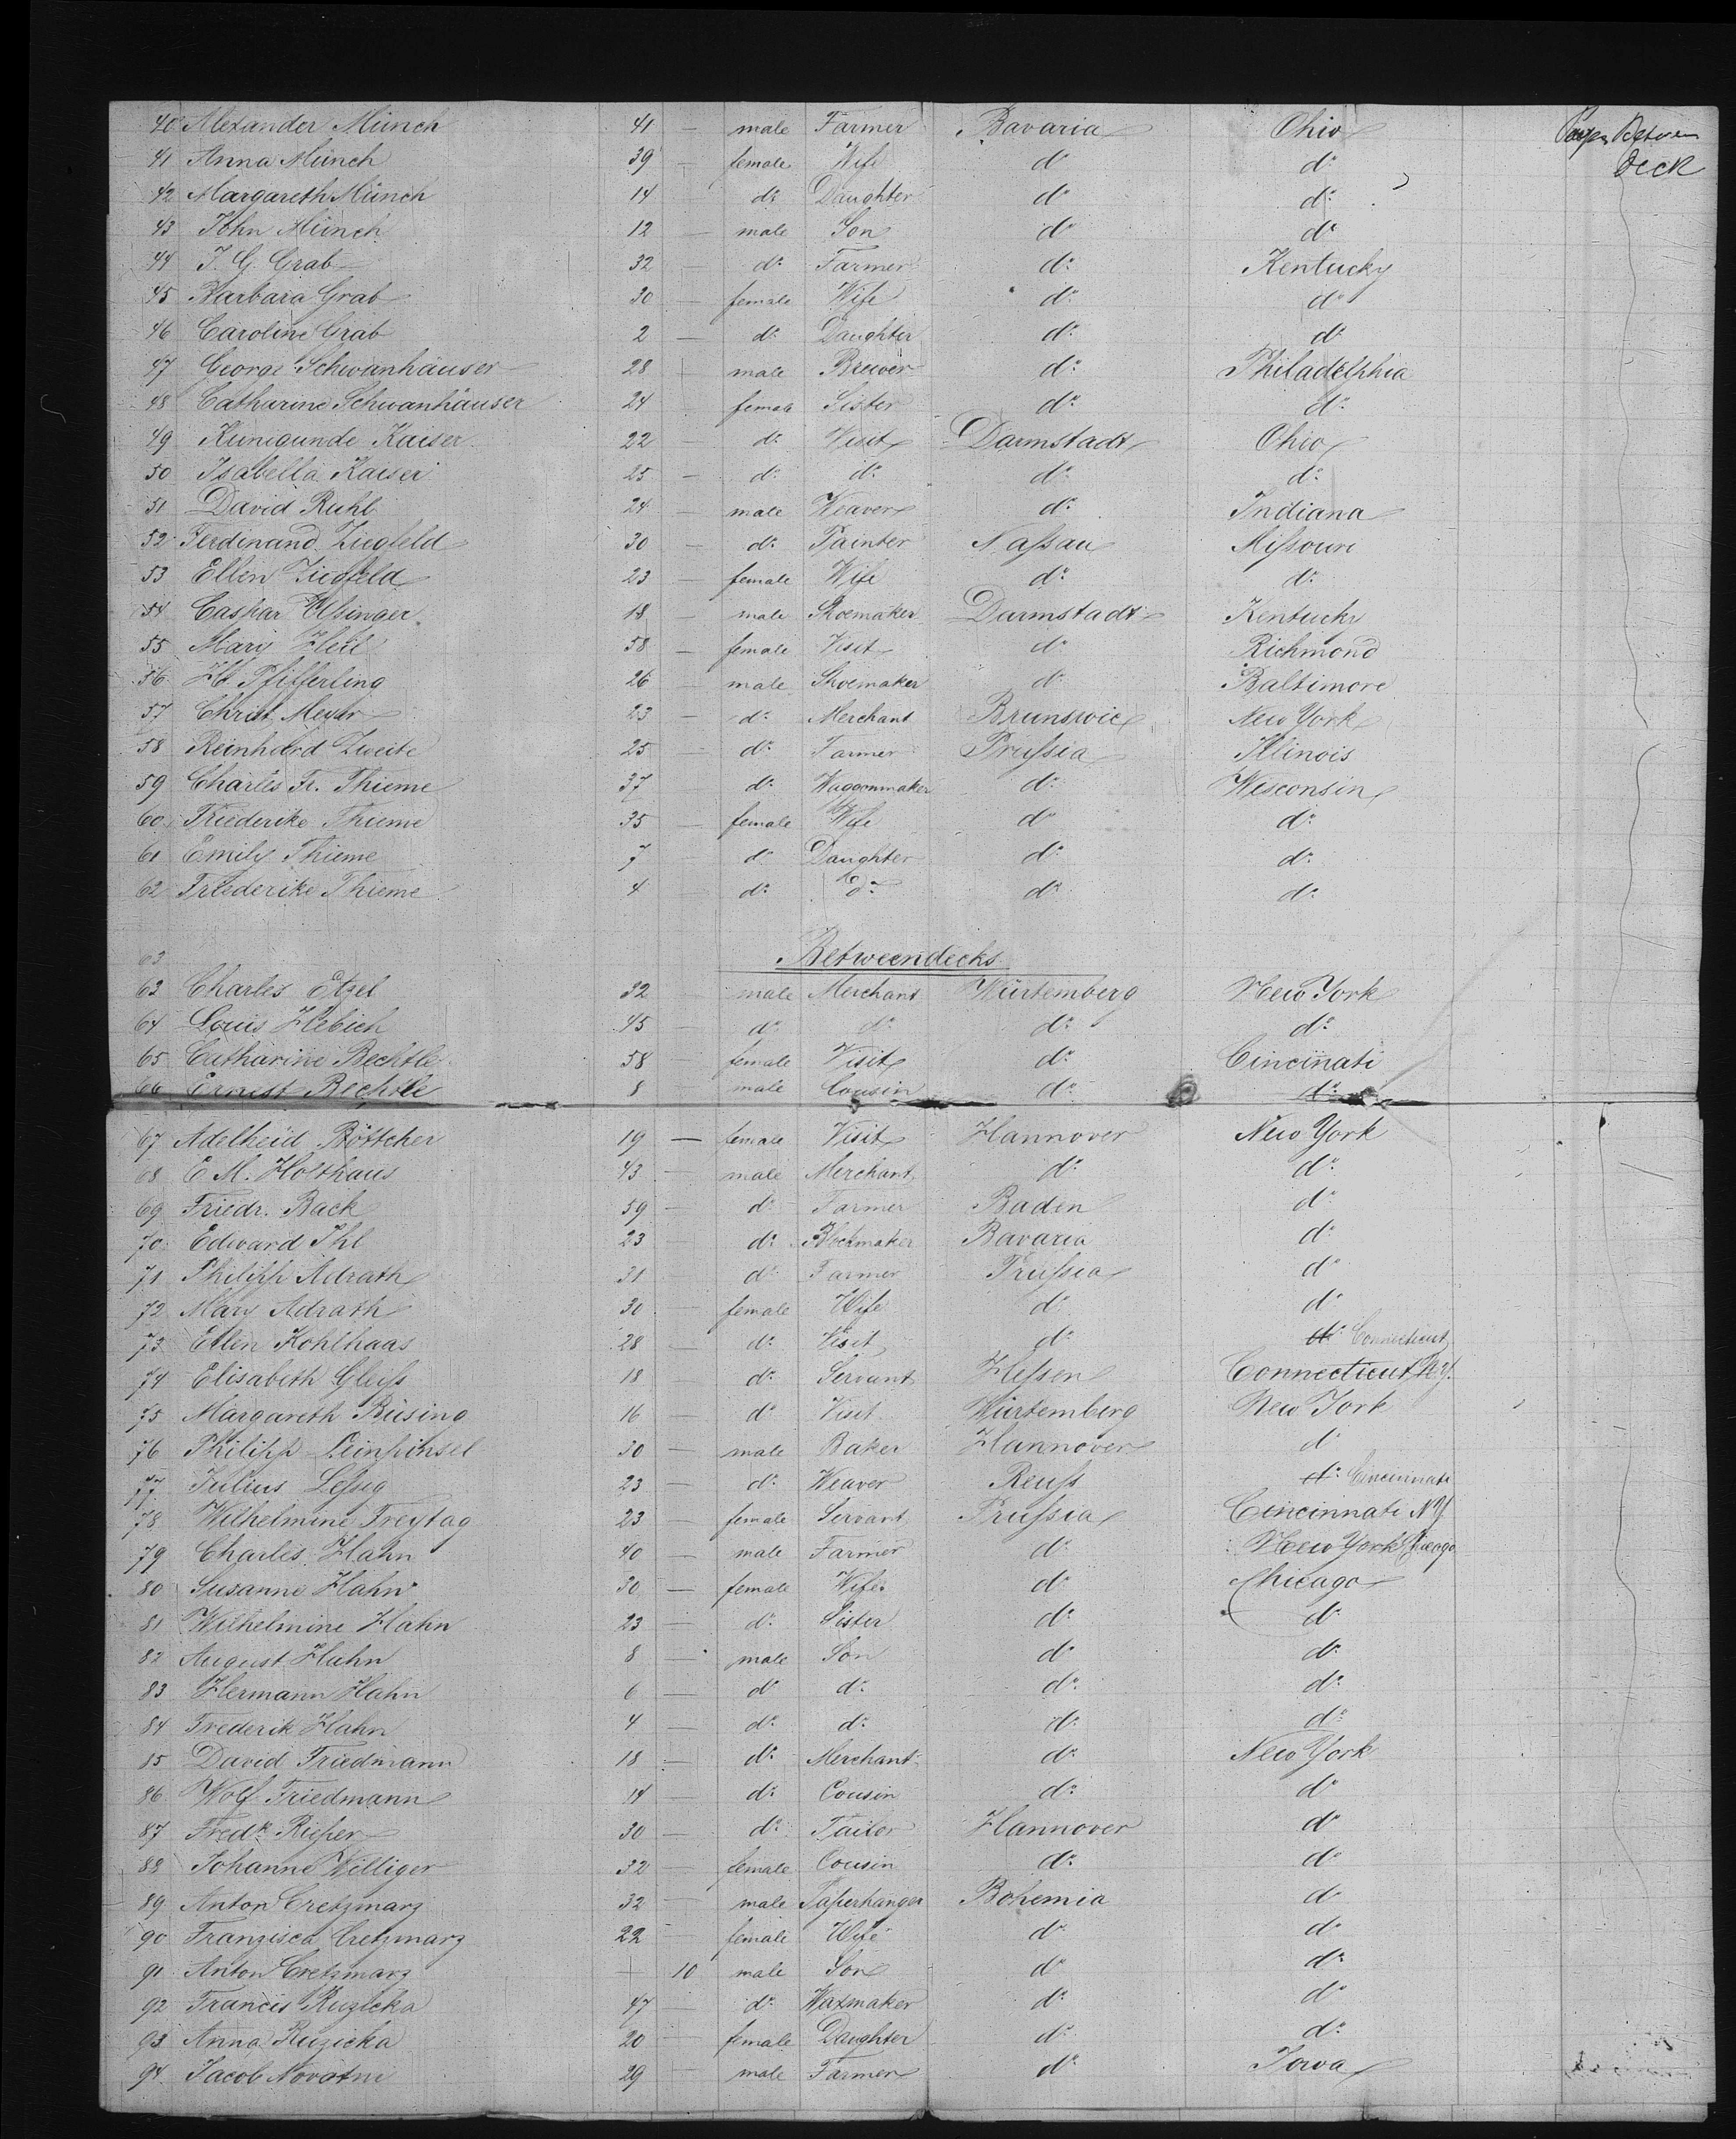 40 Alexander Münch 41 — male Farmer Bavaria Ohio Between
41 Anna Münch 39 — female Wife do do Deck
42 Margareth Münch 14 — do Daughter do do
43 John Münch 12 — male Son do do
44 J. G. Grab 32 — do Farmer do Kentucky
45 Barbara Grab 30 — female Wife do do
46 Caroline Grab 2 — do Daughter do do
47 George Schwanhäuser 28 — male Brewer do Philadelphia
48 Catharine Schwanhäuser 24 — female Sister do do
49 Kunigunde Kaiser 22 — do Visit Darmstadt Ohio
50 Isabella Kaiser 25 — do do do do
51 David Ruhl 24 — male Weaver do Indiana
52 Ferdinand Ziegfeld 30 — do Painter Nassau Missouri
53 Ellen Ziegfeld 23 — female Wife do do
54 Caspar 18 — male Shoemaker Darmstadt Kentucky
55 Mary Heil 58 — female Visit do Richmond
56 Pfifferling 26 — male Shoemaker do Baltimore
57 Christ. Meyer 23 — do Merchant Brunswic New York
58 Reinhard Zweite 25 — do Farmer Prussia Illinois
59 Charles Fr. Thieme 37 do Waggonmaker do Wesconsin
60 Friederike Thieme 35 — female Wife do do
61 Emily Thieme 7 — do Daughter do do
62 Friederike Thieme 4 — do do do do
63
Betweendecks
63 Charles Etzel 32 male Merchant Würtemberg New York
64 Louis Hebich 45 do do do do
65 Catharine Bechtle 58 — female Visit do Cincinati
66 Ernest Bechtle 8 — male Cousin do do
67 Adelheid Böttcher 19 — female Visit Hannover New York
68 E M. Holthaus 43 — male Merchant do do
69 Friedr. Back 59 — do Farmer Baden do
70 Edward Ihl 23 do Bavaria do
71 Philipp Adrath 31 do Farmer Prussia do
72 Mary Adrath 30 — female Wife do do
73 Ellen Kohlhaas 28 — do Visit do do Connecticut
74 Elisabeth Gleiss 18 — do Servant Hessen Connecticut N.Y.
75 Margareth Büsing 16 — do Visit Würtemberg New York
76 Philipp Leinpinsel 30 — male Baker Hannover do
77 Julius Lessig 23 — do Weaver Reuss do Cincinnati
78 Wilhelmine Freytag 23 — female Servant Prussia Cincinnati N Y
79 Charles Hahn 40 — male Farmer do New York Chicago
80 Susanne Hahn 30 — female Wife do Chicago
81 Wilhelmine Hahn 23 — do Sister do do
82 August Hahn 8 — male Son do do
83 Hermann Hahn 6 — do do do do
84 Frederik Hahn 4 — do do do do
85 David Friedmann 18 — do Merchant do New York
86 Wolf Friedmann 14 — do Cousin do do
87 Fredk. Rieper 30 — do Tailor Hannover do
88 Johanne Williger 32 — female Cousin do do
89 Anton Cretzmarz 32 — male Paperhanger Bohemia do
90 Franzisca Cretzmarz 22 — female Wife do do
91 Anton Cretzmarz — 10 male Son do do
92 Francis Ruzicka 47 — do Waxmaker do do
93 Anna Ruzicka 20 — female Daughter do do
94 Jacob Novotni 29 — male Farmer do Iowa